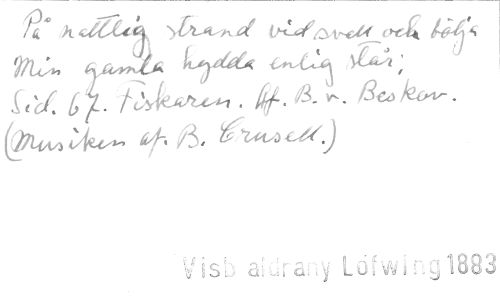 På nattlig strand vid svall och bölja
Min gamla hydda enlig står;
Sid. 67. Fiskaren. Af. B. v. Beskov.
(Musiken af. B. Crusell.)
Visb aldrany Löfwing 1883